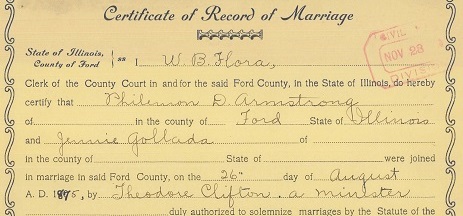 Certificate of Record of Marriage
State of Illinois, County of Ford } ss I W. B. Flora,
CIVIL NOV 28 DIVIS
Clerk of the County Court in and for the said Ford County, in the State of Illinois, do hereby
certify that Philemon D. Armstrong
of Ford State of Illinois
and Jennie Gollada of
in the county of State of were joined
in marriage in said Ford County, on the 26" day of August
A. D. 1875, by Theodore Clifton, a minister
duly authorized to solemnize marriages by the Statute of the